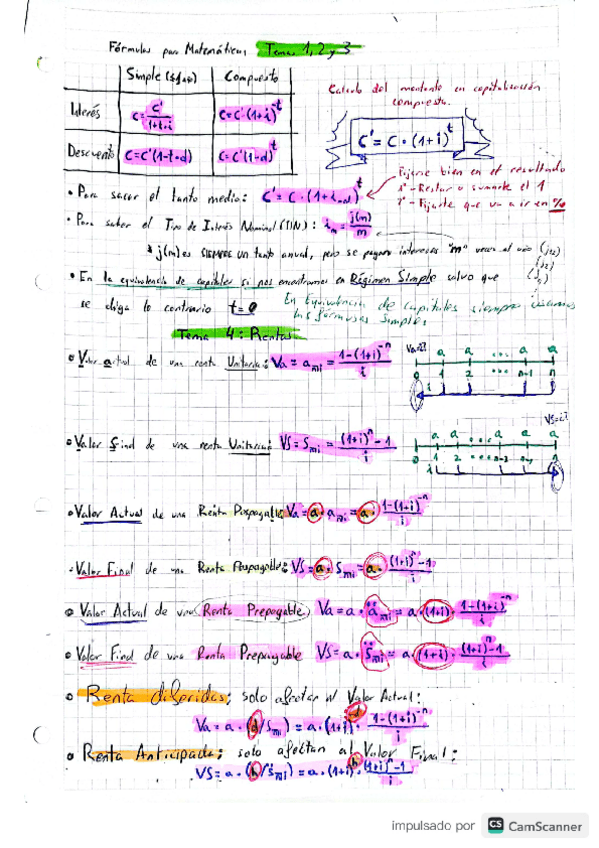 Fórmulas para Matemáticas Temas 1, 2 y 3
Simple (≤1 año) Compuesto
Interés C = C'/1+t·i C = C'·(1+i)^t
Descuento C = C'(1-t·d) C = C'(1-d)^t
Calculo del montante en capitalización
compuesta.
C' = C · (1+i)^t
• Para sacar el tanto medio: C' = C · (1+i md)^t
Fijarse bien en el resultado
1º - Restar o sumarle el 1
2º - Fijarte que va a ir en %
• Para saber el Tipo de Interés Nominal (TIN): i m = j(m)/m
* j(m) es SIEMPRE un tanto anual, pero se pagan intereses "m" veces al año (j12)
• En la equivalencia de capitales si nos encontramos en Régimen Simple salvo que
se diga lo contrario t = 0
En Equivalencia de capitales siempre usamos
las fórmulas simples
Tema 4: Rentas
• Valor actual de una renta Unitaria: Va = a n¬i = 1-(1+i)^-n / i
Va=¿?
a a ... a a
0 1 2 ... n-1 n
• Valor Final de una renta Unitaria VS = S n¬i = (1+i)^n - 1 / i
VS=¿?
• Valor Actual de una Renta Pospagable: Va = a · a n¬i = a · 1-(1+i)^-n / i
- Valor Final de una Renta Pospagable: VS = a · S n¬i = a · (1+i)^n - 1 / i
• Valor Actual de una Renta Prepagable: Va = a · ä n¬i = a · (1+i) · 1-(1+i)^-n / i
• Valor Final de una Renta Prepagable VS = a · S̈ n¬i = a · (1+i) · (1+i)^n - 1 / i
• Renta Diferidas; solo afectan al Valor Actual:
Va = a · (d/S n¬i) = a · (1+i)^-d · 1-(1+i)^-n / i
• Renta Anticipada; solo afectan al Valor Final:
VS = a · (h/S n¬i) = a · (1+i)^h · (1+i)^n - 1 / i
impulsado por CS CamScanner